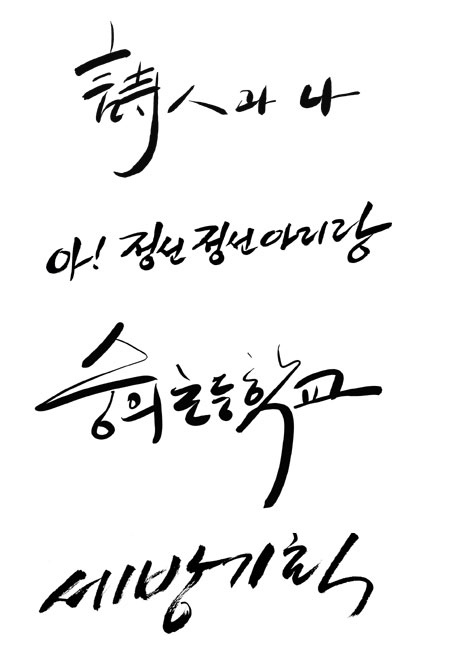 詩人과 나
아! 정선 정선아리랑
숭의초등학교
세방기획